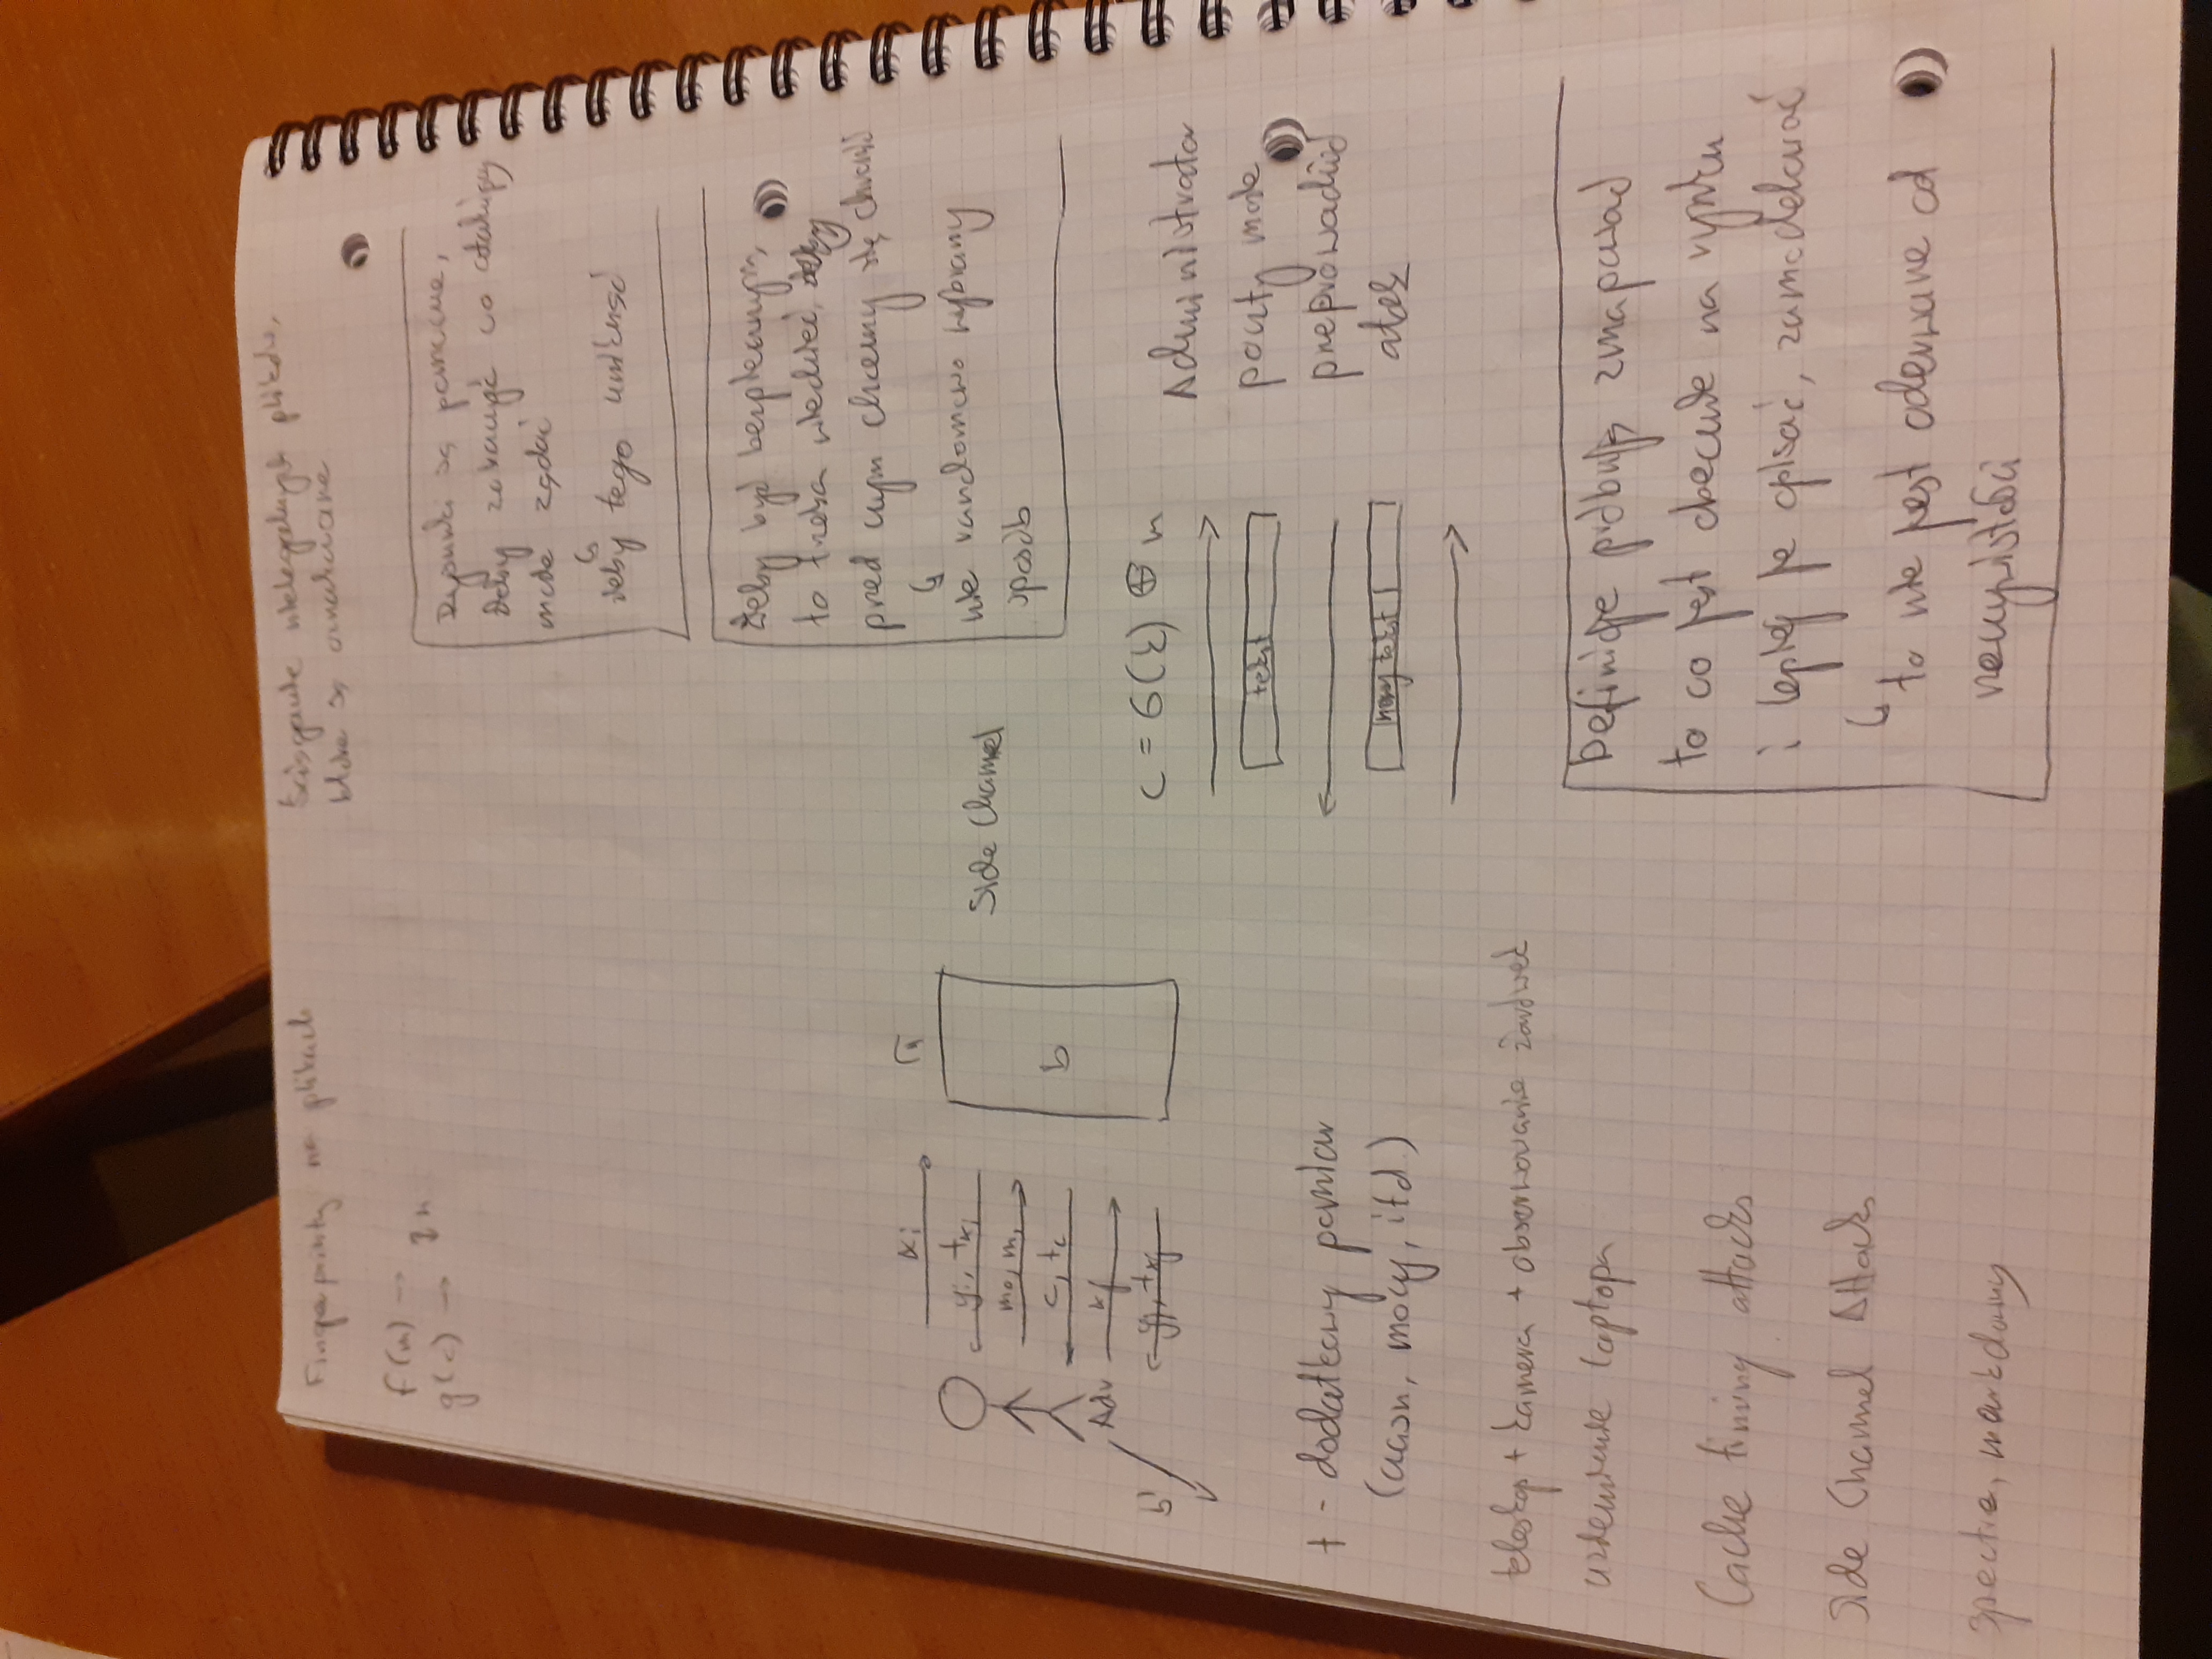 Fingerprinty na plikach
Ściąganie nielegalnych plików,
które są oznakowane
f(m) →
g(c) →
Rysunki są pomocne,
żeby zobaczyć co atakujący
może żądać
↳
żeby tego uniknąć
Żeby być bezpiecznym,
to trzeba wiedzieć,
przed czym chcemy się chronić
↳
nie randomowo wybrany
sposób
xi
π
yi, txi
m0, m1
c, tc
xj
yj, txj
Adv
b'
b
Side Channel
c = G(k) ⊕ m
tekst
nowy tekst
Administrator
poczty może
przeprowadzić
atak
t - dodatkowy pomiar
(czasu, mocy, itd.)
teleskop + kamera + obserwowanie żarówek
uziemienie laptopa
Cache timing attacks
Side Channel Attacks
Spectre,
Definicje próbują zmapować
to co jest obecnie na rynku
i lepiej je opisać, zamodelować
↳ to nie jest oderwane od
rzeczywistości